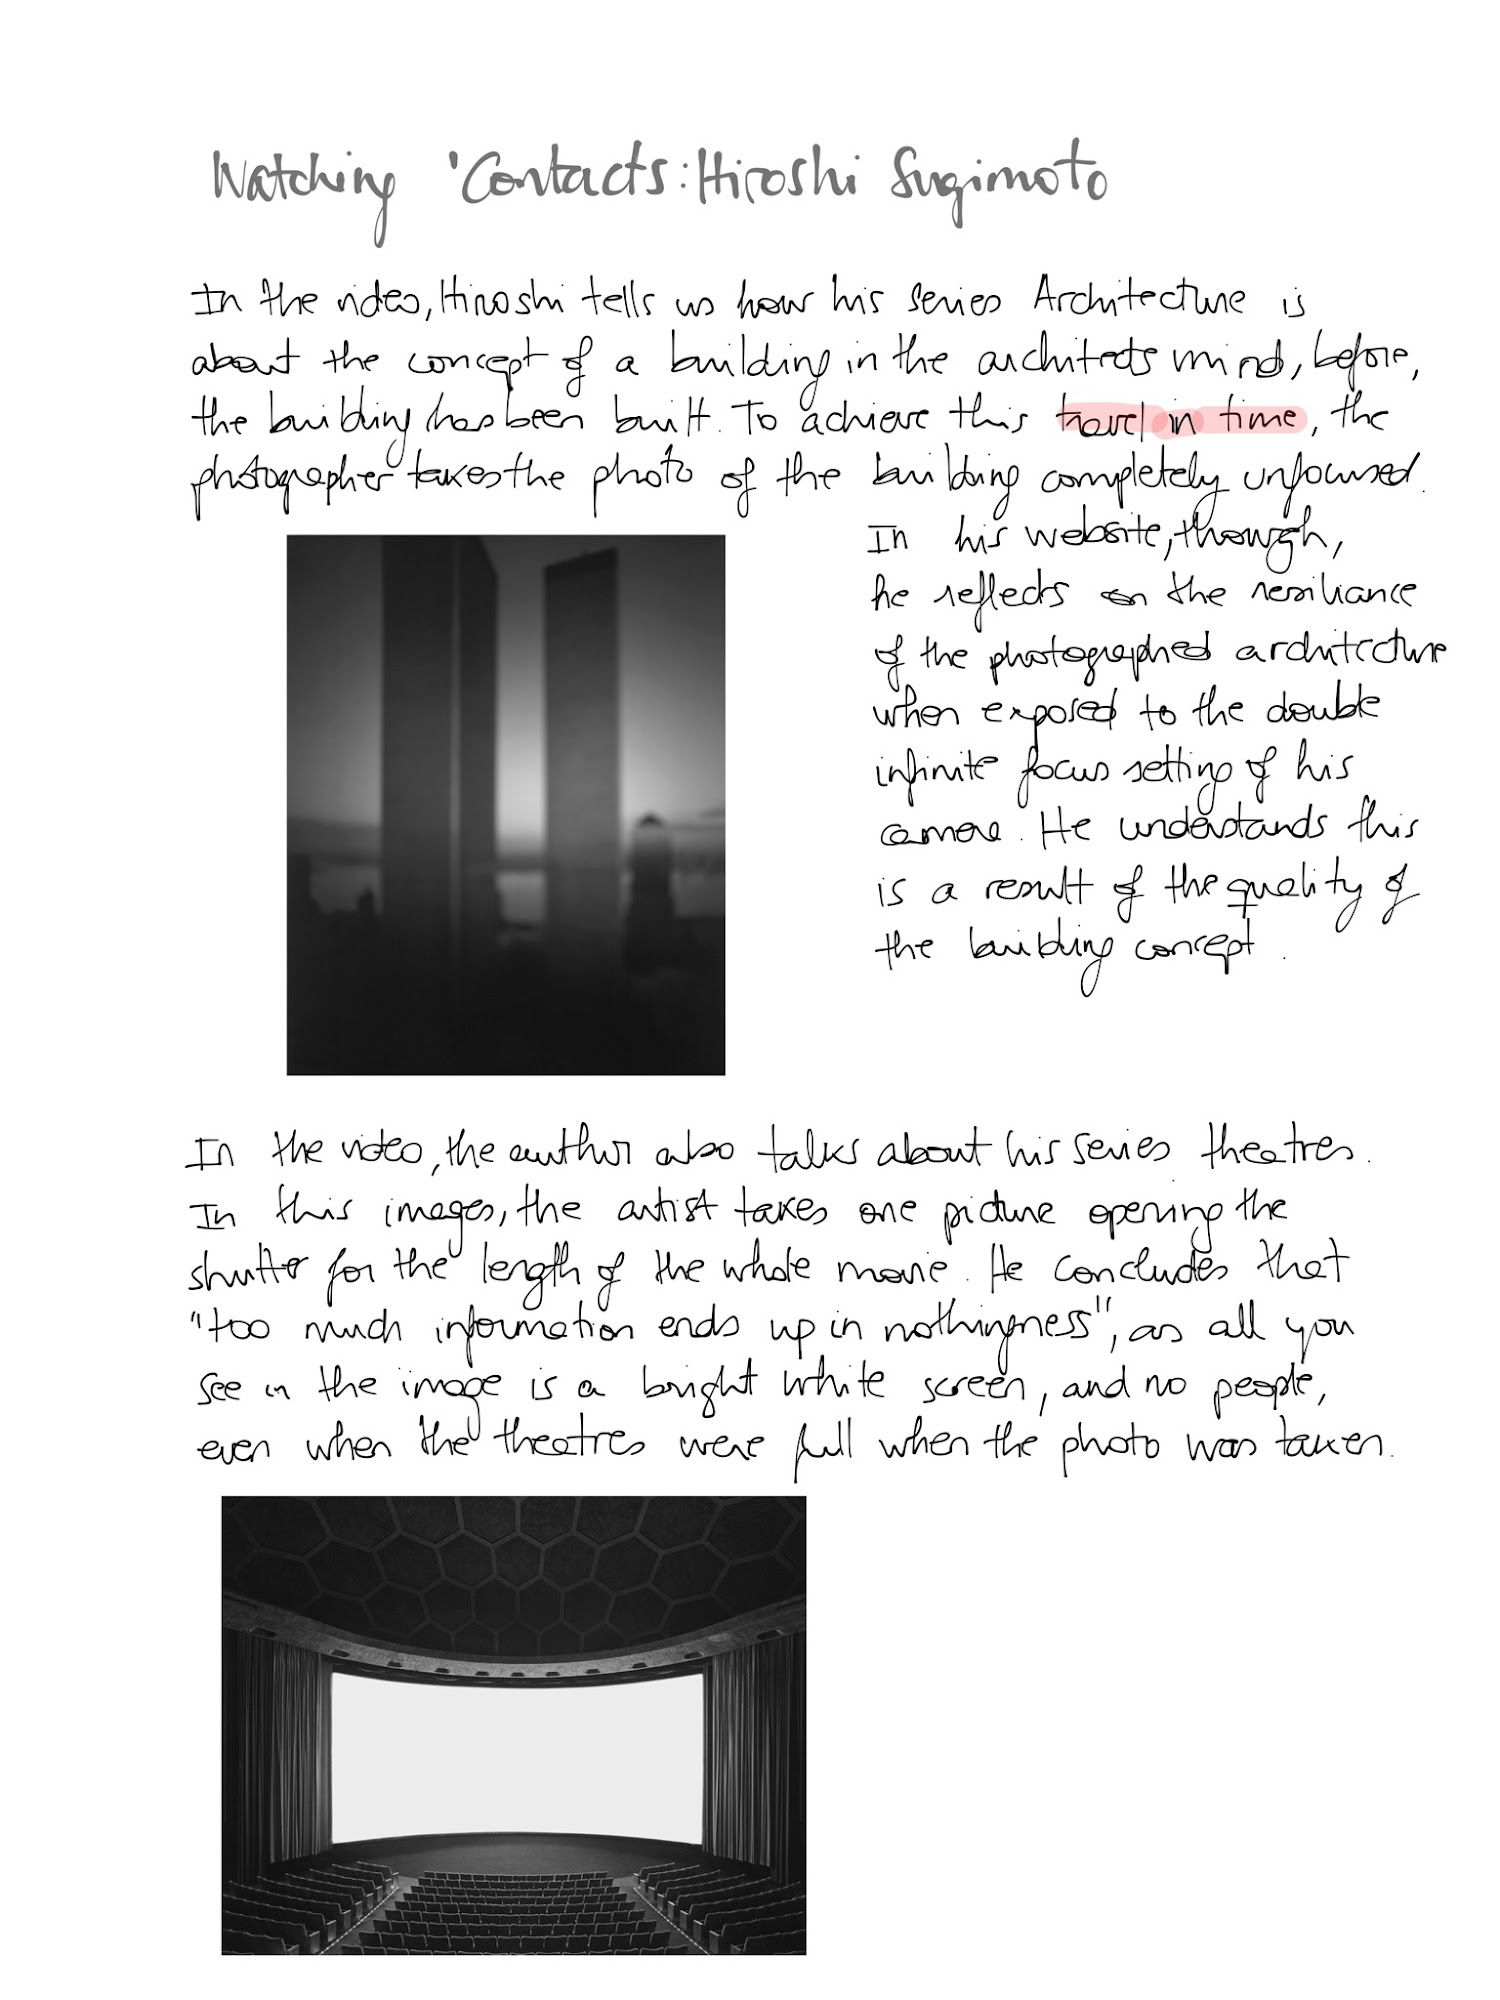 Watching 'Contacts: Hiroshi Sugimoto
In the video, Hiroshi tells us how his series Architecture is
about the concept of a building in the architects mind, before,
the building has been built. To achieve this travel in time, the
photographer takes the photo of the building completely unfocused.
In his website, though,
he reflects on the resiliance
of the photographed architecture
when exposed to the double
infinite focus setting of his
camera. He understands this
is a result of the quality of
the building concept.
In the video, the author also talks about his series theatres.
In this images, the artist takes one picture opening the
shutter for the length of the whole movie. He concludes that
"too much information ends up in nothingness", as all you
see in the image is a bright white screen, and no people,
even when the theatres were full when the photo was taken.